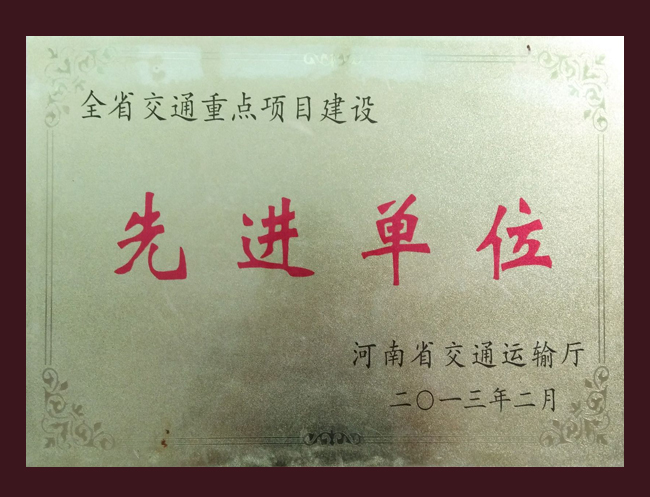 全省交通重点项目建设
先进单位
河南省交通运输厅
二〇一三年二月